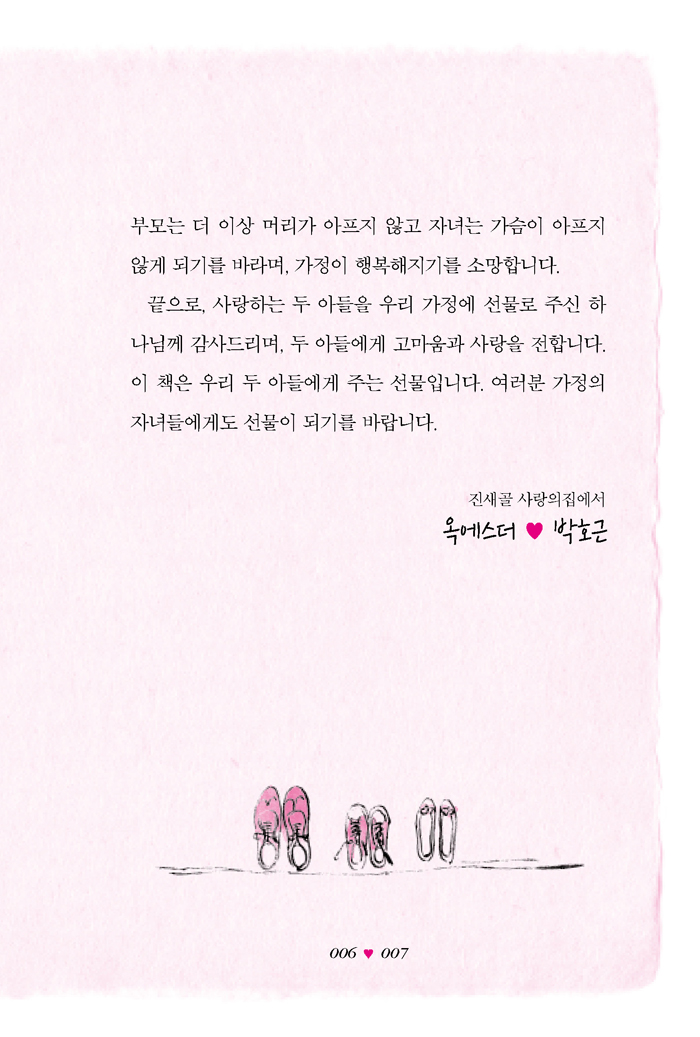 부모는 더 이상 머리가 아프지 않고 자녀는 가슴이 아프지
않게 되기를 바라며, 가정이 행복해지기를 소망합니다.
끝으로, 사랑하는 두 아들을 우리 가정에 선물로 주신 하
나님께 감사드리며, 두 아들에게 고마움과 사랑을 전합니다.
이 책은 우리 두 아들에게 주는 선물입니다. 여러분 가정의
자녀들에게도 선물이 되기를 바랍니다.
진새골 사랑의집에서
옥에스더 ♥ 박호근
006 ♥ 007